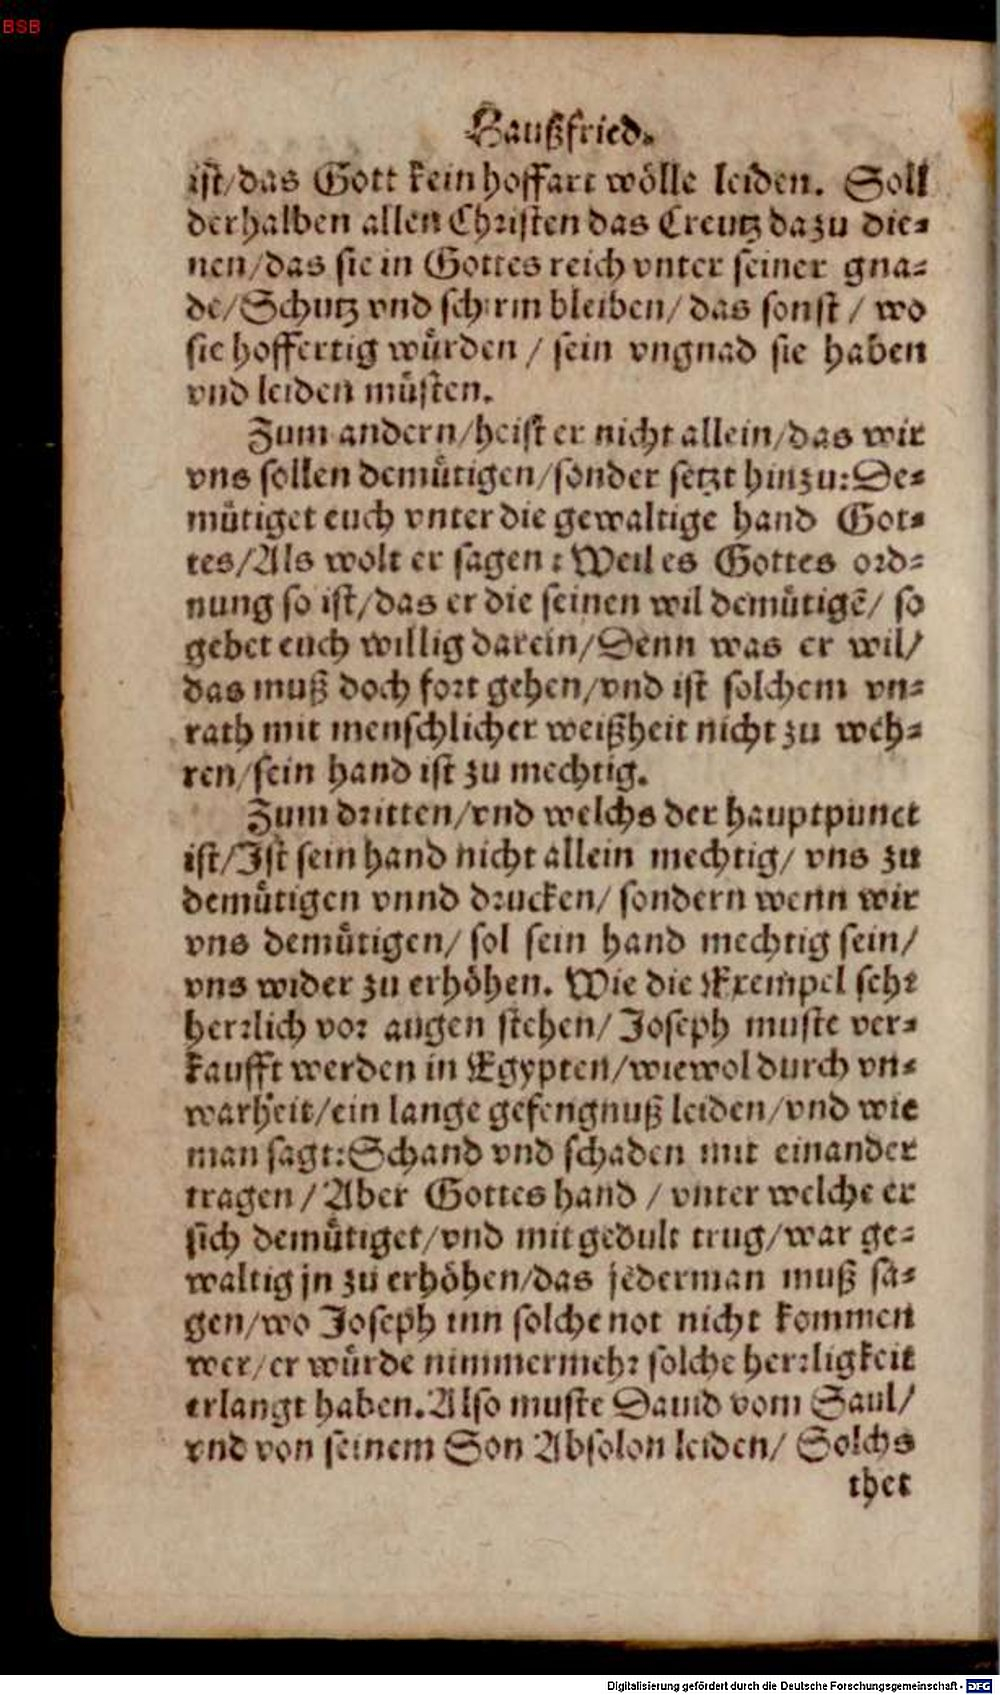 BSB
Haußfried.
ist/das Gott kein hoffart wölle leiden. Soll
derhalben allen Christen das Creutz dazu die⸗
nen/das sie in Gottes reich vnter seiner gna⸗
de/Schutz vnd schirm bleiben/ das sonst / wo
sie hoffertig wuͤrden / sein vngnad sie haben
vnd leiden muͤsten.
Zum andern/heist er nicht allein/das wir
vns sollen demuͤtigen/sonder setzt hinzu:De⸗
muͤtiget euch vnter die gewaltige hand Got⸗
tes/Als wolt er sagen : Weil es Gottes ord⸗
nung so ist/das er die seinen wil demuͤtigē/ so
gebet euch willig darein/Denn was er wil/
das muß doch fort gehen/vnd ist solchem vn⸗
rath mit menschlicher weißheit nicht zu weh⸗
ren/sein hand ist zu mechtig.
Zum dritten/vnd welchs der hauptpunct
ist/Ist sein hand nicht allein mechtig/ vns zu
demuͤtigen vnnd drucken/ sondern wenn wir
vns demuͤtigen/ sol sein hand mechtig sein/
vns wider zu erhöhen. Wie die Exempel sehr
herrlich vor augen stehen/ Joseph muste ver⸗
kaufft werden in Egypten/wiewol durch vn⸗
warheit/ein lange gefengnuß leiden/vnd wie
man sagt:Schand vnd schaden mit einander
tragen / Aber Gottes hand / vnter welche er
sich demuͤtiget/vnd mit gedult trug/war ge⸗
waltig jn zu erhöhen/das jederman muß sa⸗
gen/wo Joseph inn solche not nicht kommen
wer/er wuͤrde nimmermehr solche herrligkeit
erlangt haben. Also muste Dauid vom Saul/
vnd von seinem Son Absolon leiden/ Solchs
thet
Digitalisierung gefördert durch die Deutsche Forschungsgemeinschaft - DFG